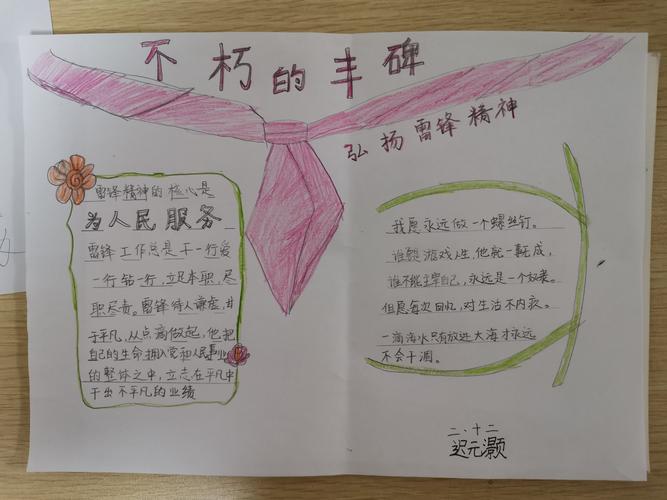 不朽的丰碑
弘扬雷锋精神
雷锋精神的核心是
为人民服务
雷锋工作总是干一行爱
一行钻一行，立足本职，尽
职尽责。雷锋待人谦虚，甘
于平凡，从点滴做起，他把
自己的生命拥入党和人民事业
的整体之中，立志在平凡中
干出不平凡的业绩
我愿永远做一个螺丝钉。
谁游戏人生，他就一事无成，
谁不能主宰自己，永远是一个奴隶。
但愿每次回忆，对生活不内疚。
一滴海水只有放进大海才永远
不会干涸。
二、十二
迟元灏